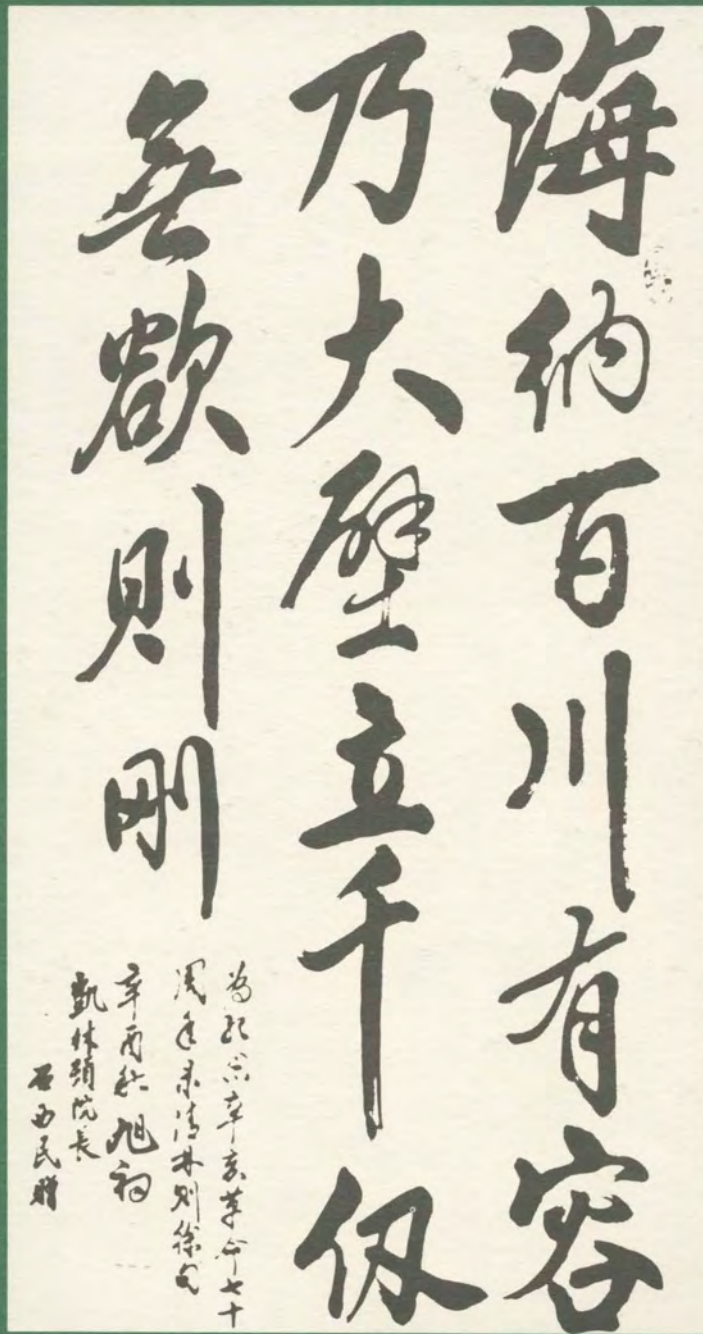 海納百川有容
乃大壁立千仞
無欲則剛
為紀念辛亥革命七十
周年录清林則徐句
辛酉秋旭初
凱林頓院長
石西民贈